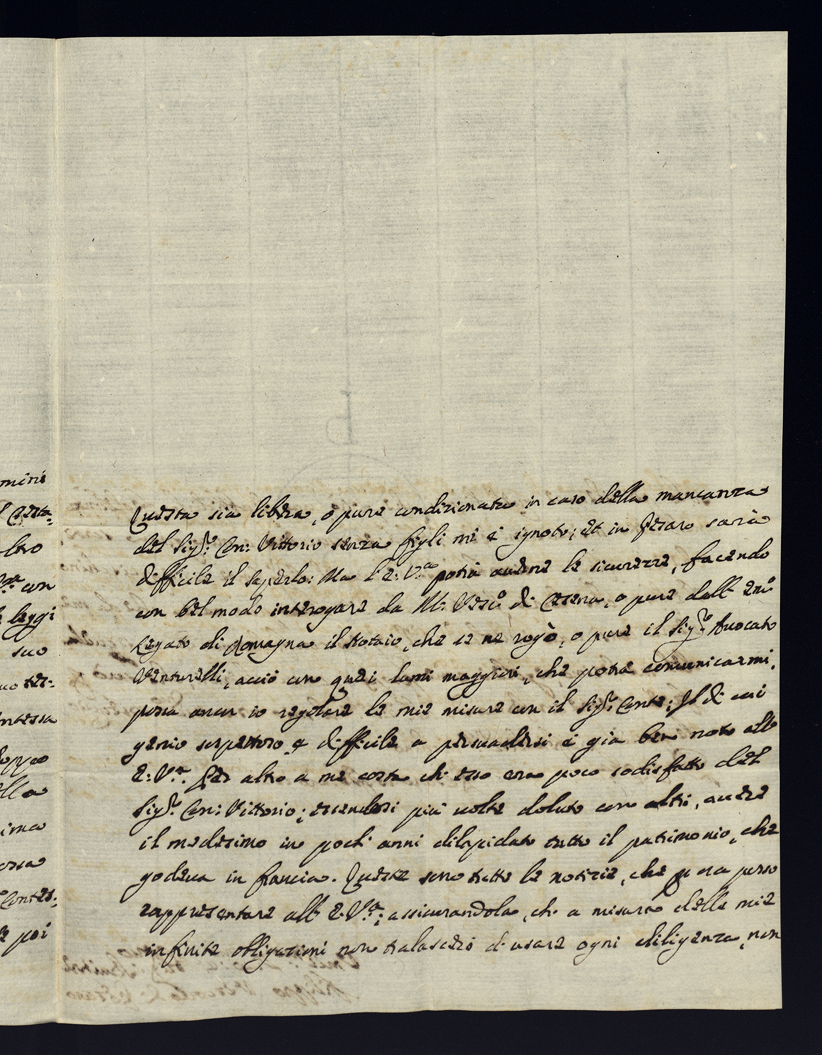 mini
Questa sia libera, o pure condizionata in caso della mancanza
del Sig.r Con: Vittorio senza figli mi è ignoto; et in Pesaro saria
lvo
difficile il saperlo: Ma l'E: V.ra potrà averne le sicurezze, facendo
con
con bel modo interogare da M.r Vesc.o di Cesena, o pure dall' Em.o
leggi
Legato di Romagna il Notaio, che se ne rogò, o pure il Sig.r Avocato
suo
Venturelli, acciò con quei lumi maggiori, che potrà comunicarmi,
possa ancor io regolare le mie misure con il Sig.r Conte; Il di cui
genio sospettoso, e difficile a persuadersi è già ben noto all'
E: V.ra. Per altro a me costa che esso era poco sodisfatto del
Sig.r Con: Vittorio; essendosi più volte doluto con altri, avere
il medesimo in pochi anni dilapidato tutto il patrimonio, che
godeva in Francia. Queste sono tutte le notizie, che p ora posso
rappresentare all' E: V.ra; assicurandola, che a misura delle mie
poi
infinite obligazioni non tralascerò di usare ogni diligenza, non